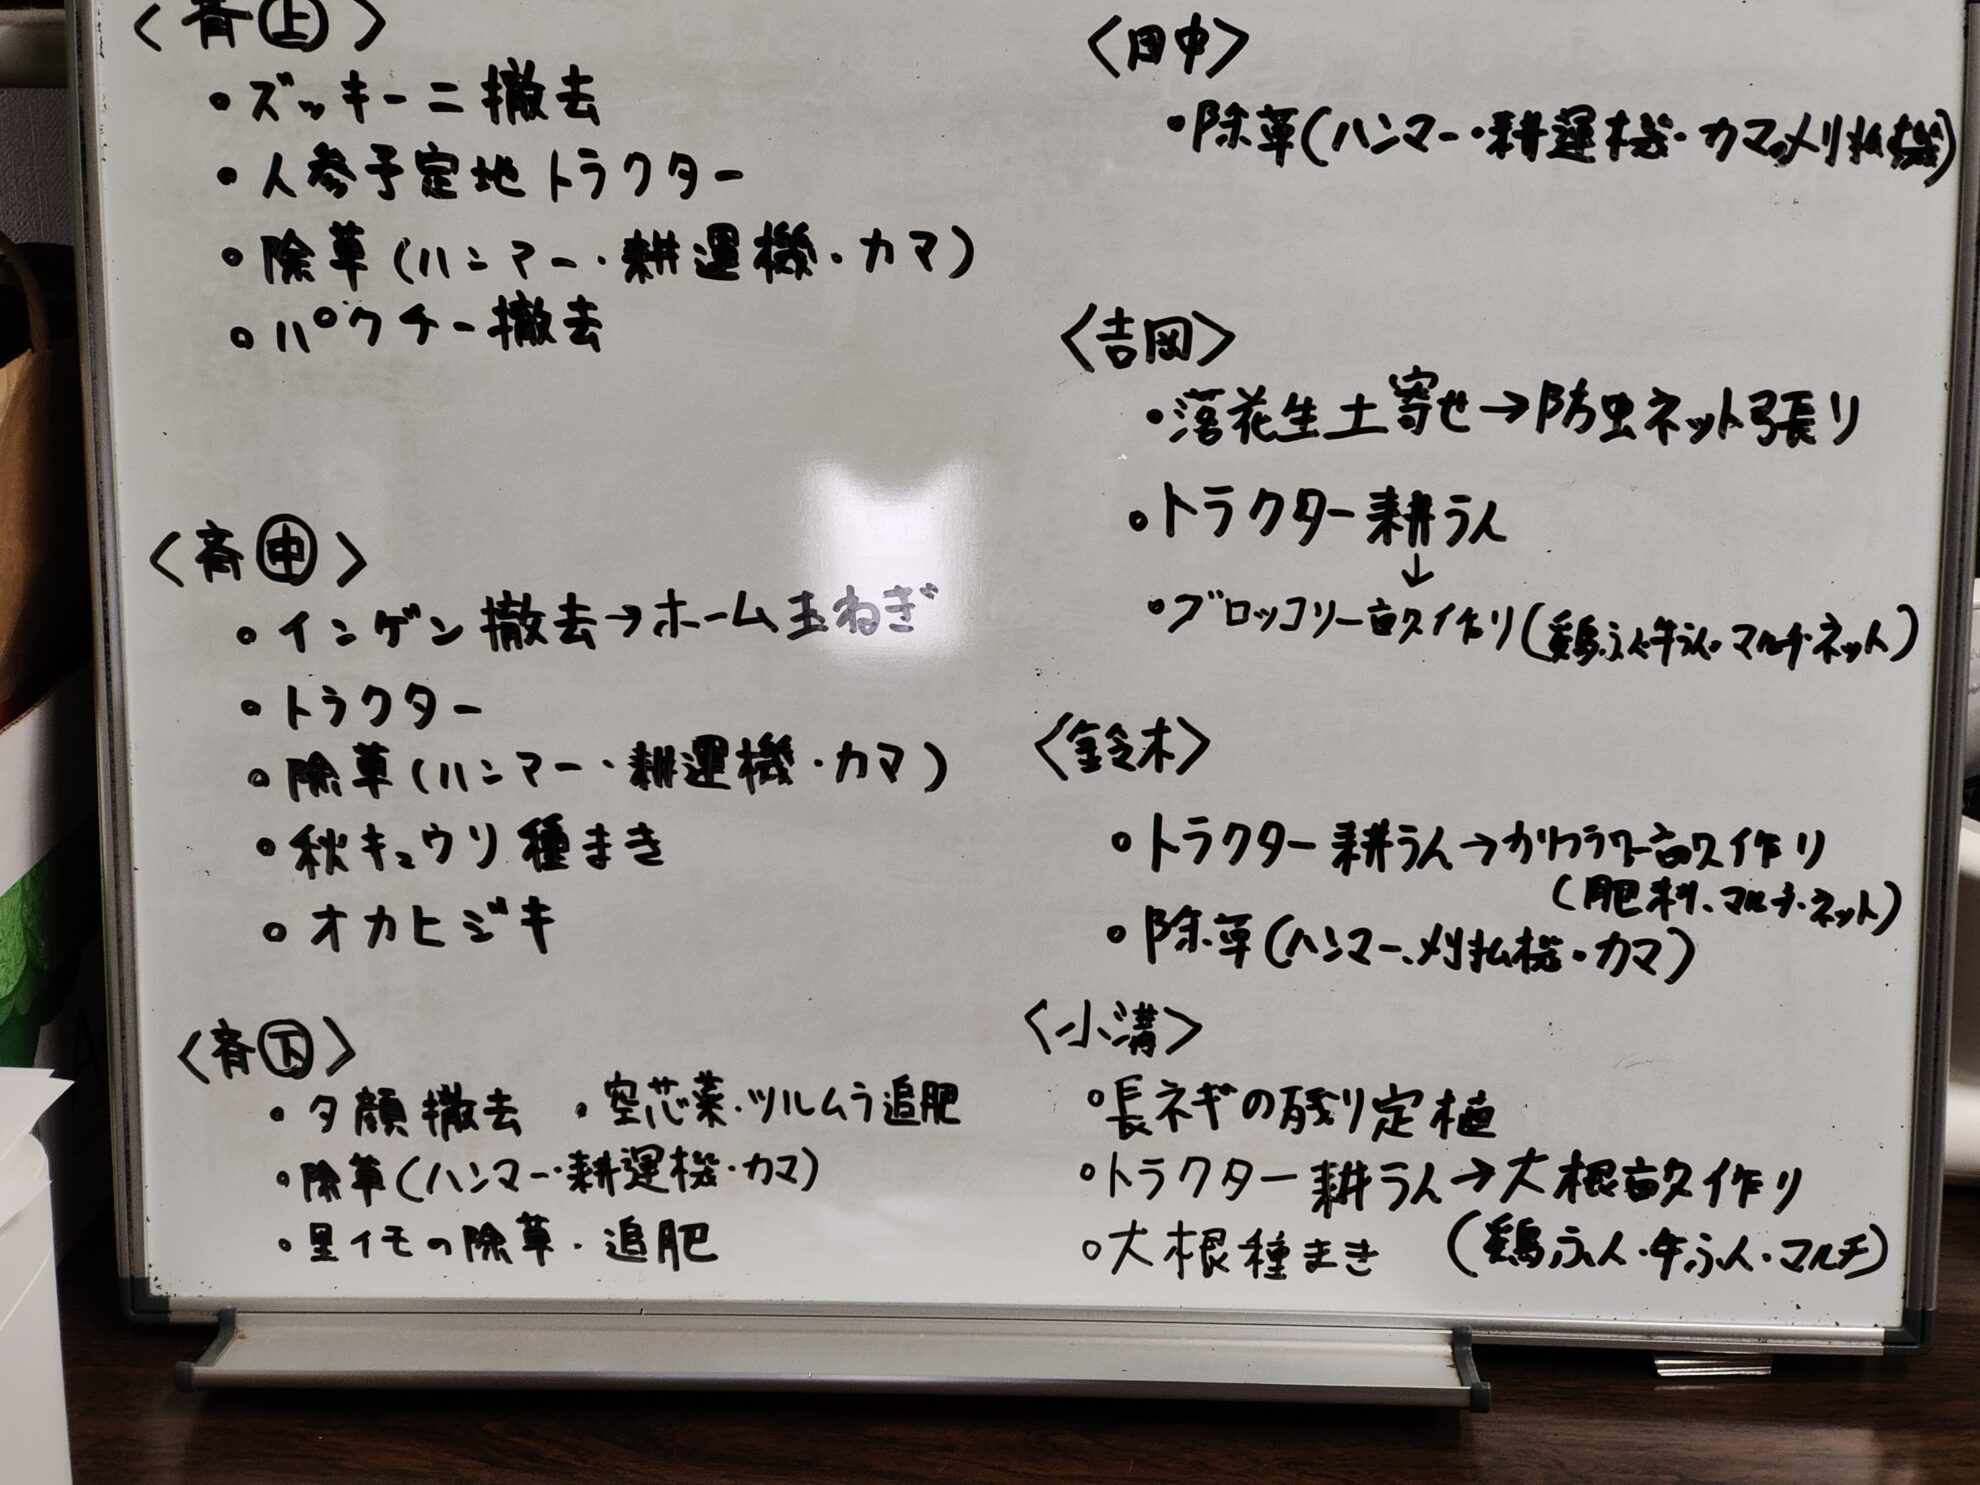 〈斉㊤〉
・ズッキーニ撤去
・人参予定地トラクター
・除草(ハンマー・耕運機・カマ)
・パクチー撤去
〈斉㊥〉
・インゲン撤去→ホーム玉ねぎ
・トラクター
・除草(ハンマー・耕運機・カマ)
・秋キュウリ種まき
・オカヒジキ
〈斉㊦〉
・夕顔撤去 ・空芯菜・ツルムラ追肥
・除草(ハンマー・耕運機・カマ)
・里イモの除草・追肥
〈田中〉
・除草(ハンマー・耕運機・カマ・刈払機)
〈吉岡〉
・落花生土寄せ→防虫ネット張り
・トラクター耕うん
↓
・ブロッコリー畝作り(鶏ふん・牛ふん・マルチ・ネット)
〈鈴木〉
・トラクター耕うん→カリフラワー畝作り
(肥料、マルチ・ネット)
・除草(ハンマー、刈払機・カマ)
〈小溝〉
・長ネギの残り定植
・トラクター耕うん→大根畝作り
・大根種まき (鶏ふん・牛ふん・マルチ)